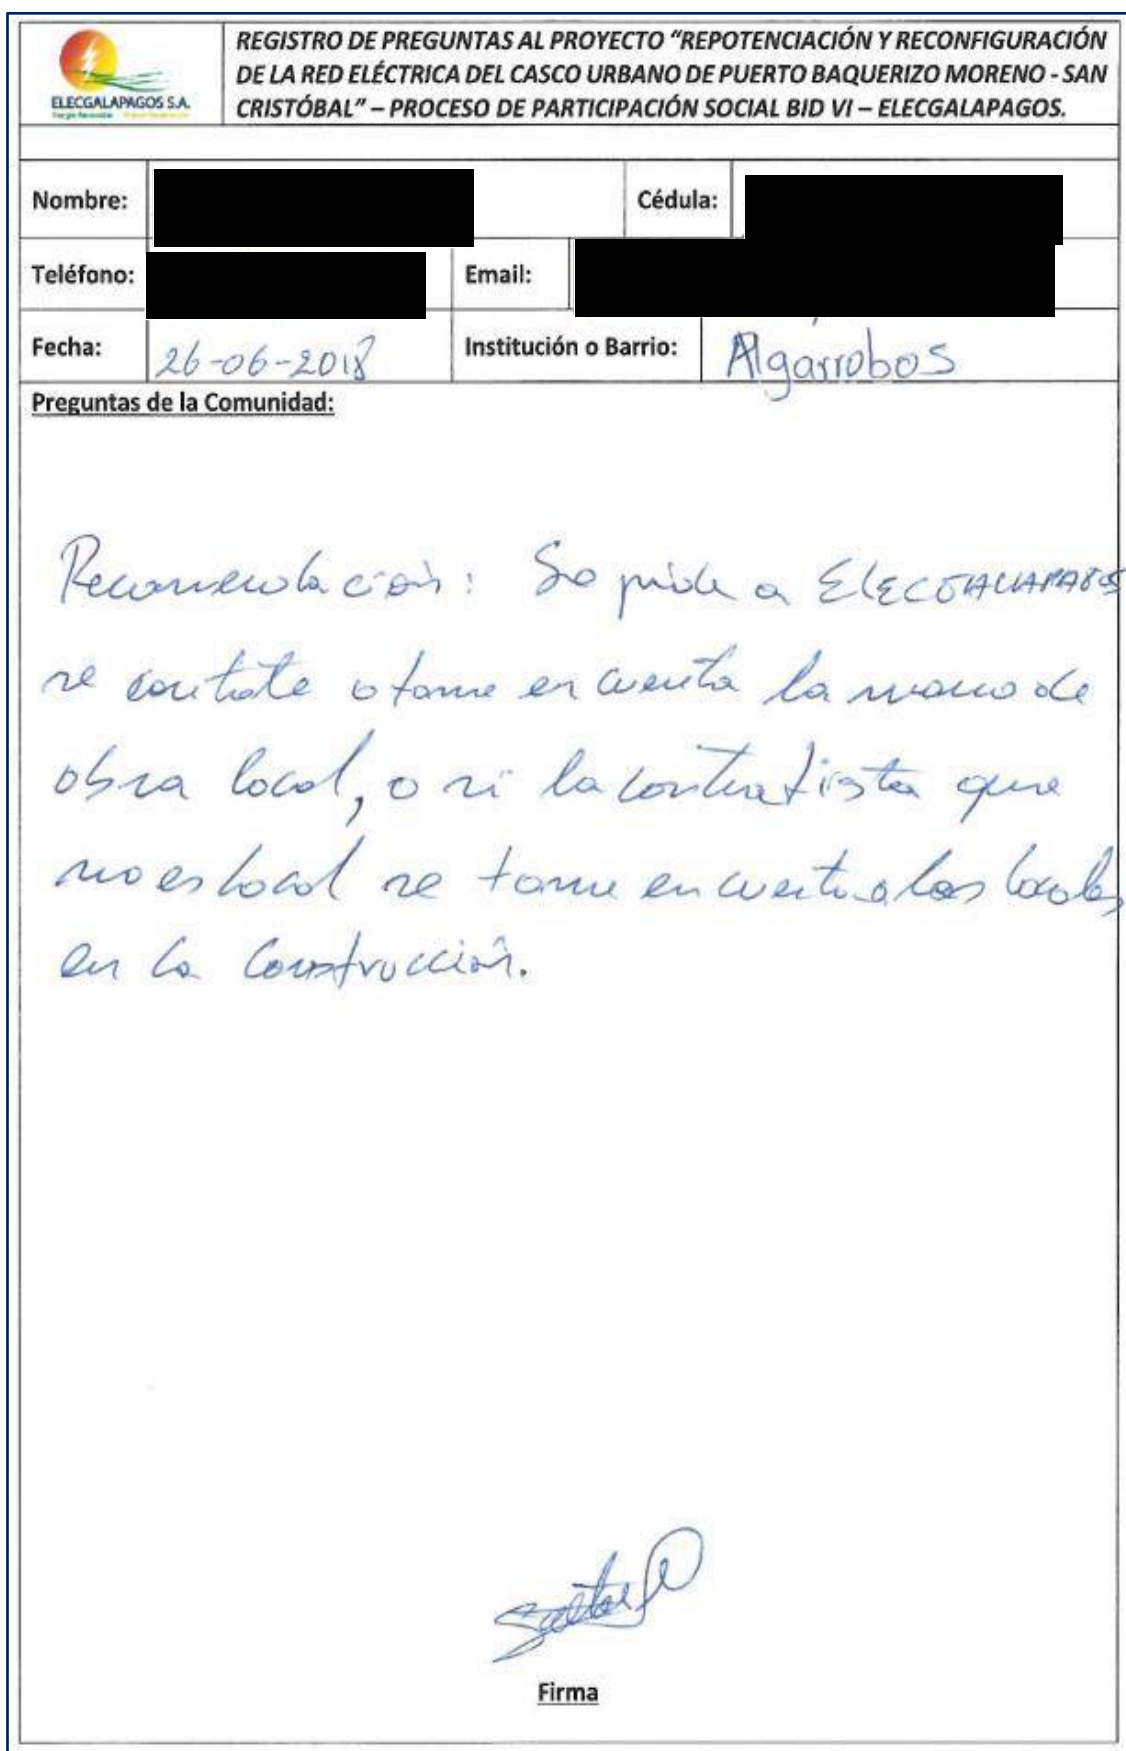 ELECGALAPAGOS S.A.
REGISTRO DE PREGUNTAS AL PROYECTO “REPOTENCIACIÓN Y RECONFIGURACIÓN
DE LA RED ELÉCTRICA DEL CASCO URBANO DE PUERTO BAQUERIZO MORENO - SAN
CRISTÓBAL” – PROCESO DE PARTICIPACIÓN SOCIAL BID VI – ELECGALAPAGOS.
Nombre: Cédula:
Teléfono: Email:
Fecha: 26-06-2018 Institución o Barrio: Algarrobos
Preguntas de la Comunidad:
Recomendación: Se pide a ELECGALAPAGOS
se contrate o tome en cuenta la mano de
obra local, o si la contratista que
no es local se tome en cuenta a los locales
en la Construcción.
Firma